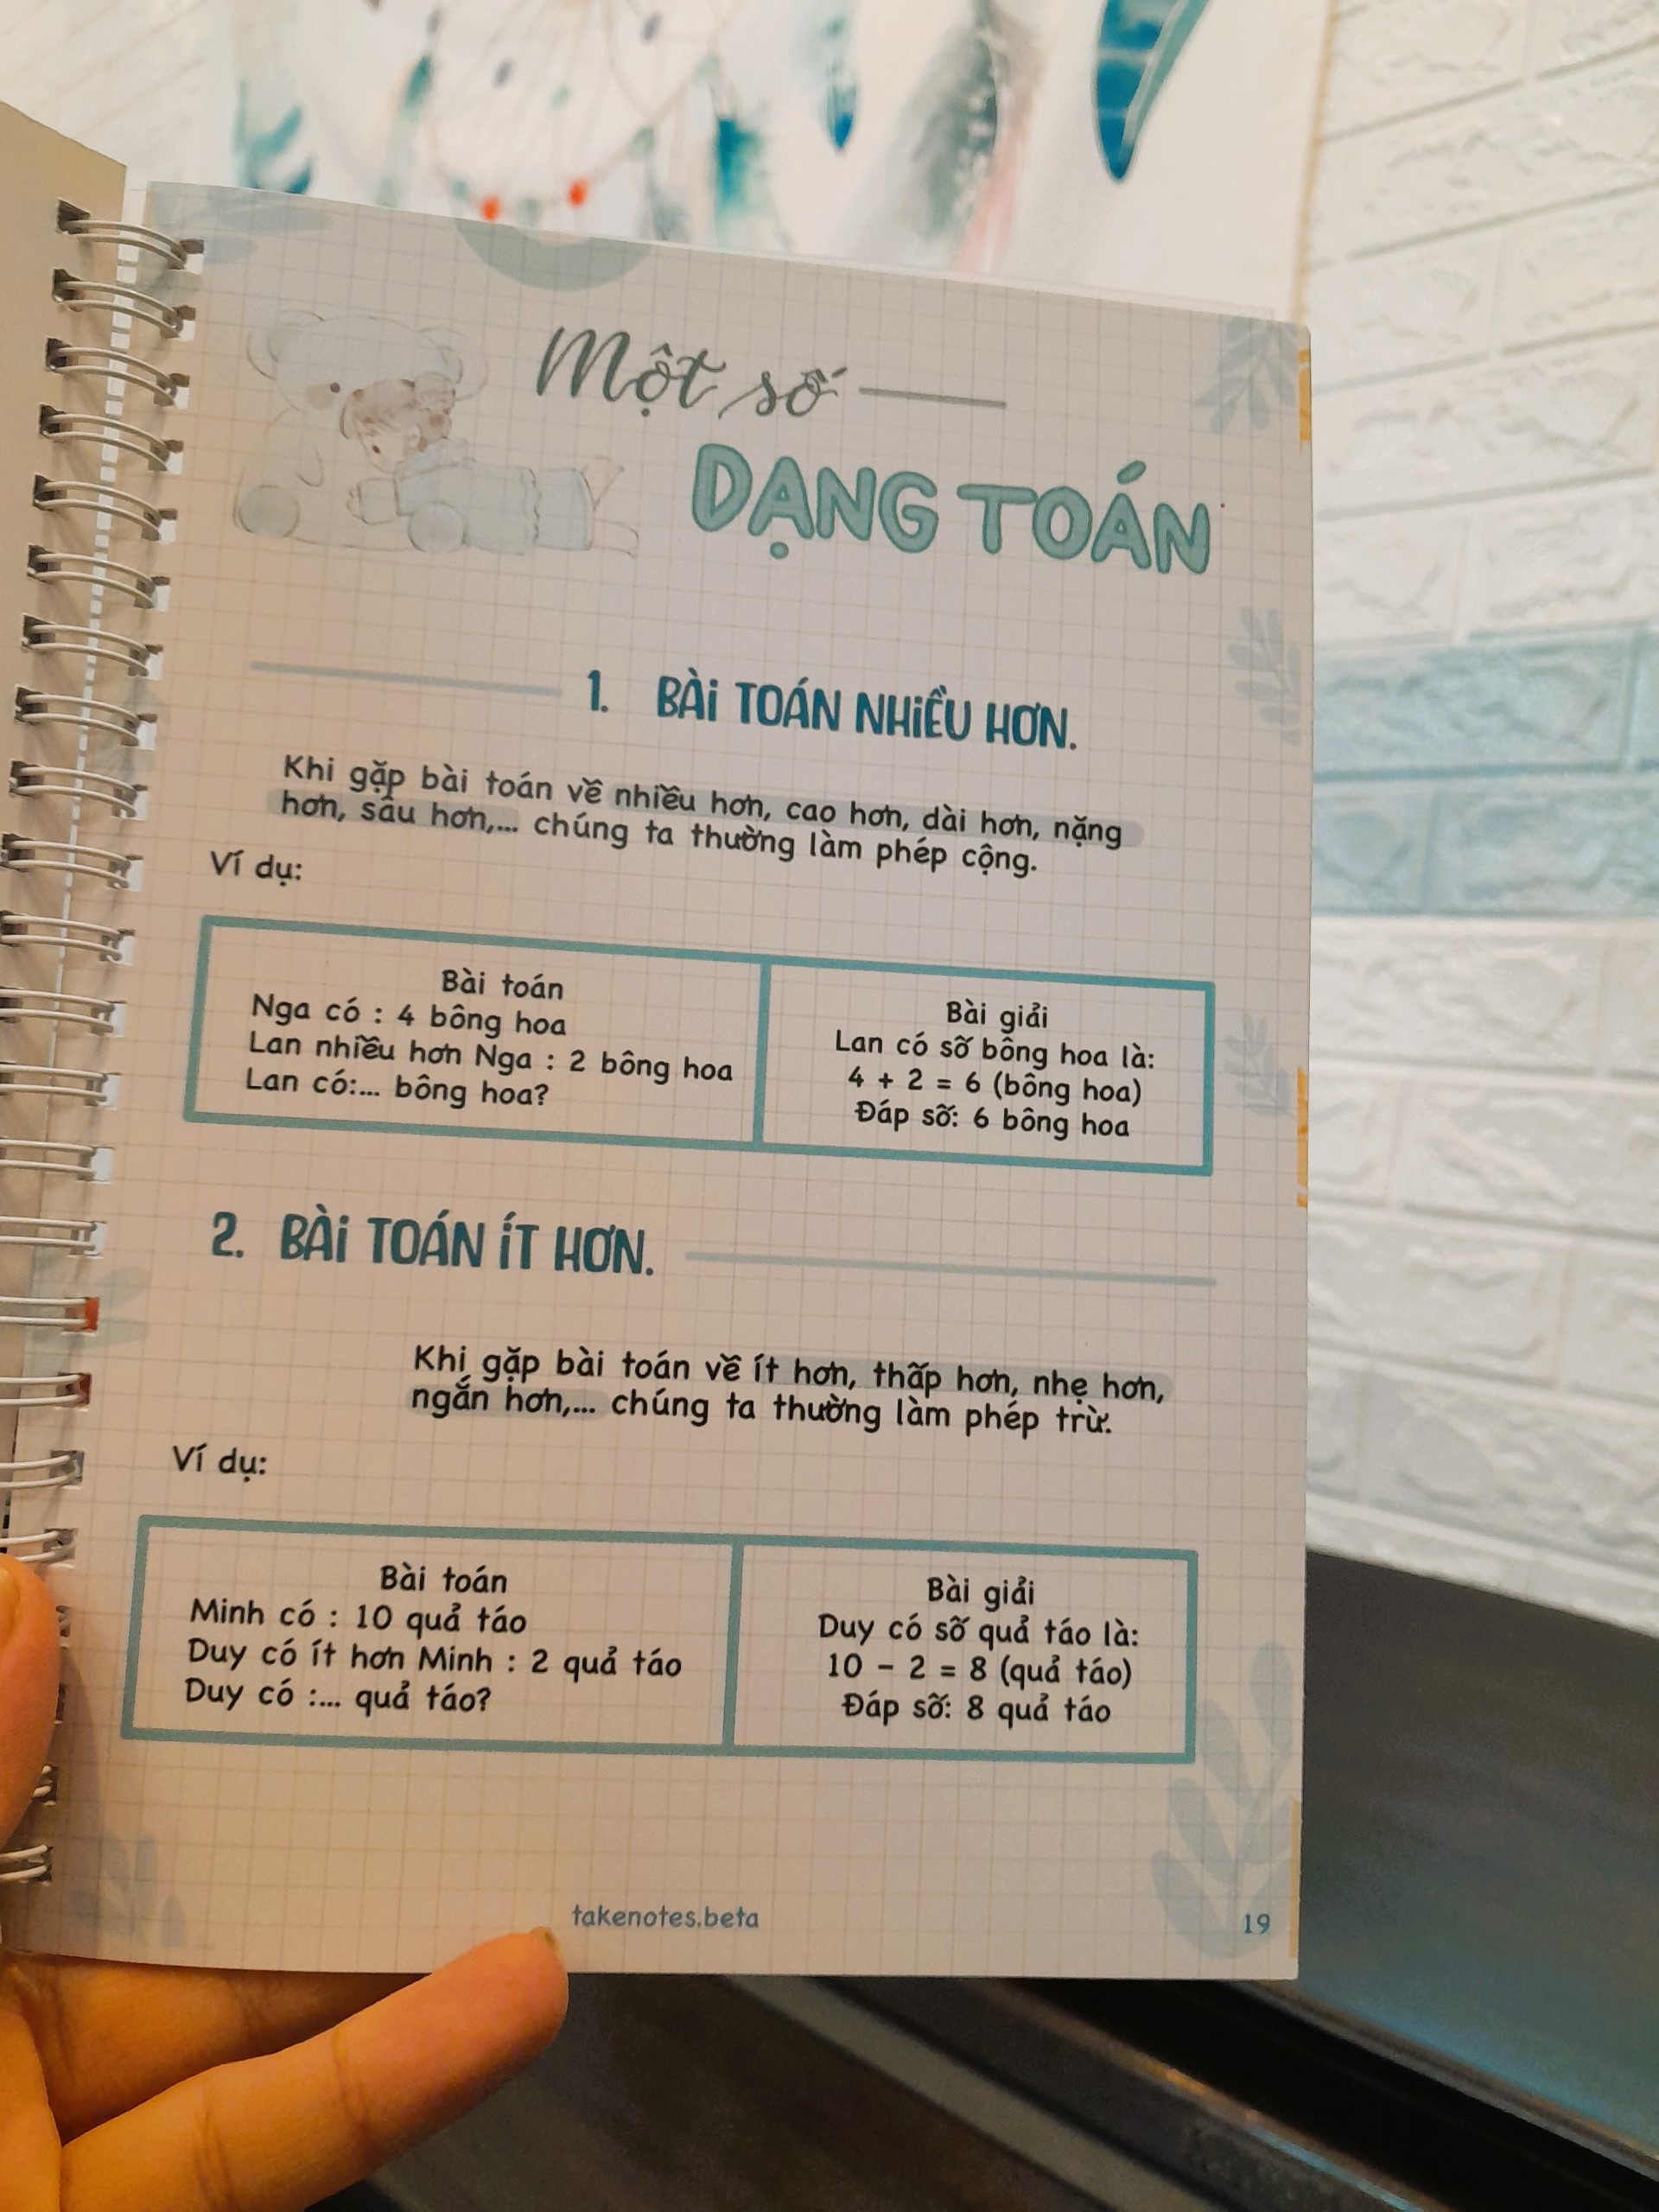 Một số
DẠNG TOÁN
1. BÀI TOÁN NHIỀU HƠN.
Khi gặp bài toán về nhiều hơn, cao hơn, dài hơn, nặng
hơn, sâu hơn,... chúng ta thường làm phép cộng.
Ví dụ:
Bài toán
Nga có : 4 bông hoa
Lan nhiều hơn Nga : 2 bông hoa
Lan có:... bông hoa?
Bài giải
Lan có số bông hoa là:
4 + 2 = 6 (bông hoa)
Đáp số: 6 bông hoa
2. BÀI TOÁN ÍT HƠN.
Khi gặp bài toán về ít hơn, thấp hơn, nhẹ hơn,
ngắn hơn,... chúng ta thường làm phép trừ.
Ví dụ:
Bài toán
Minh có : 10 quả táo
Duy có ít hơn Minh : 2 quả táo
Duy có :... quả táo?
Bài giải
Duy có số quả táo là:
10 - 2 = 8 (quả táo)
Đáp số: 8 quả táo
takenotes.beta
19